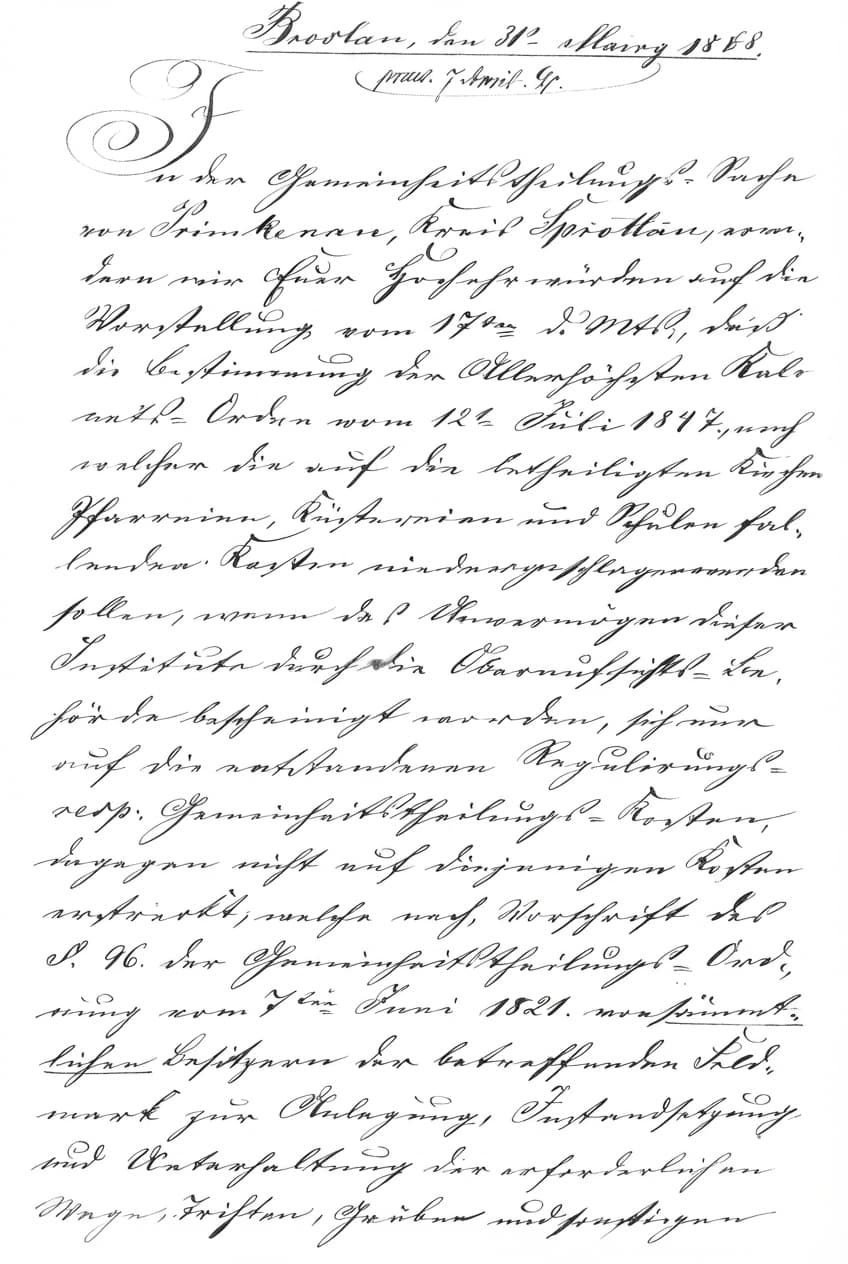 Breslau, den 31t März 1868.
praes. 7 April.
In der Gemeinheitstheilungs-Sache
von Primkenau, Kreis Sprottau, erwi-
dern wir Euer Hochehrwürden auf die
Vorstellung vom 17ten d. Mts., daß
die Bestimmung der Allerhöchsten Kabi
nets-Orden vom 12t Juli 1847., nach
welcher die auf die betheiligten Kirchen
Pfarreien, Küstereien und Schulen fal-
lenden Kosten niedergeschlagen werden
sollen, wenn das Unvermögen dieser
Institute durch die Oberaufsichts-Be-
hörde bescheinigt worden, sich nur
auf die entstandenen Regulirungs-
resp. Gemeinheitstheilungs-Kosten,
dagegen nicht auf diejenigen Kosten
erstreckt, welche nach, Vorschrift des
§. 96. der Gemeinheitstheilungs-Ord-
nung vom 7ten Juni 1821. von sämmt-
lichen Besitzern der betreffenden Feld-
mark zur Anlegung, Instandsetzung
und Unterhaltung der erforderlichen
Wege, Triften, Gräben und sonstigen